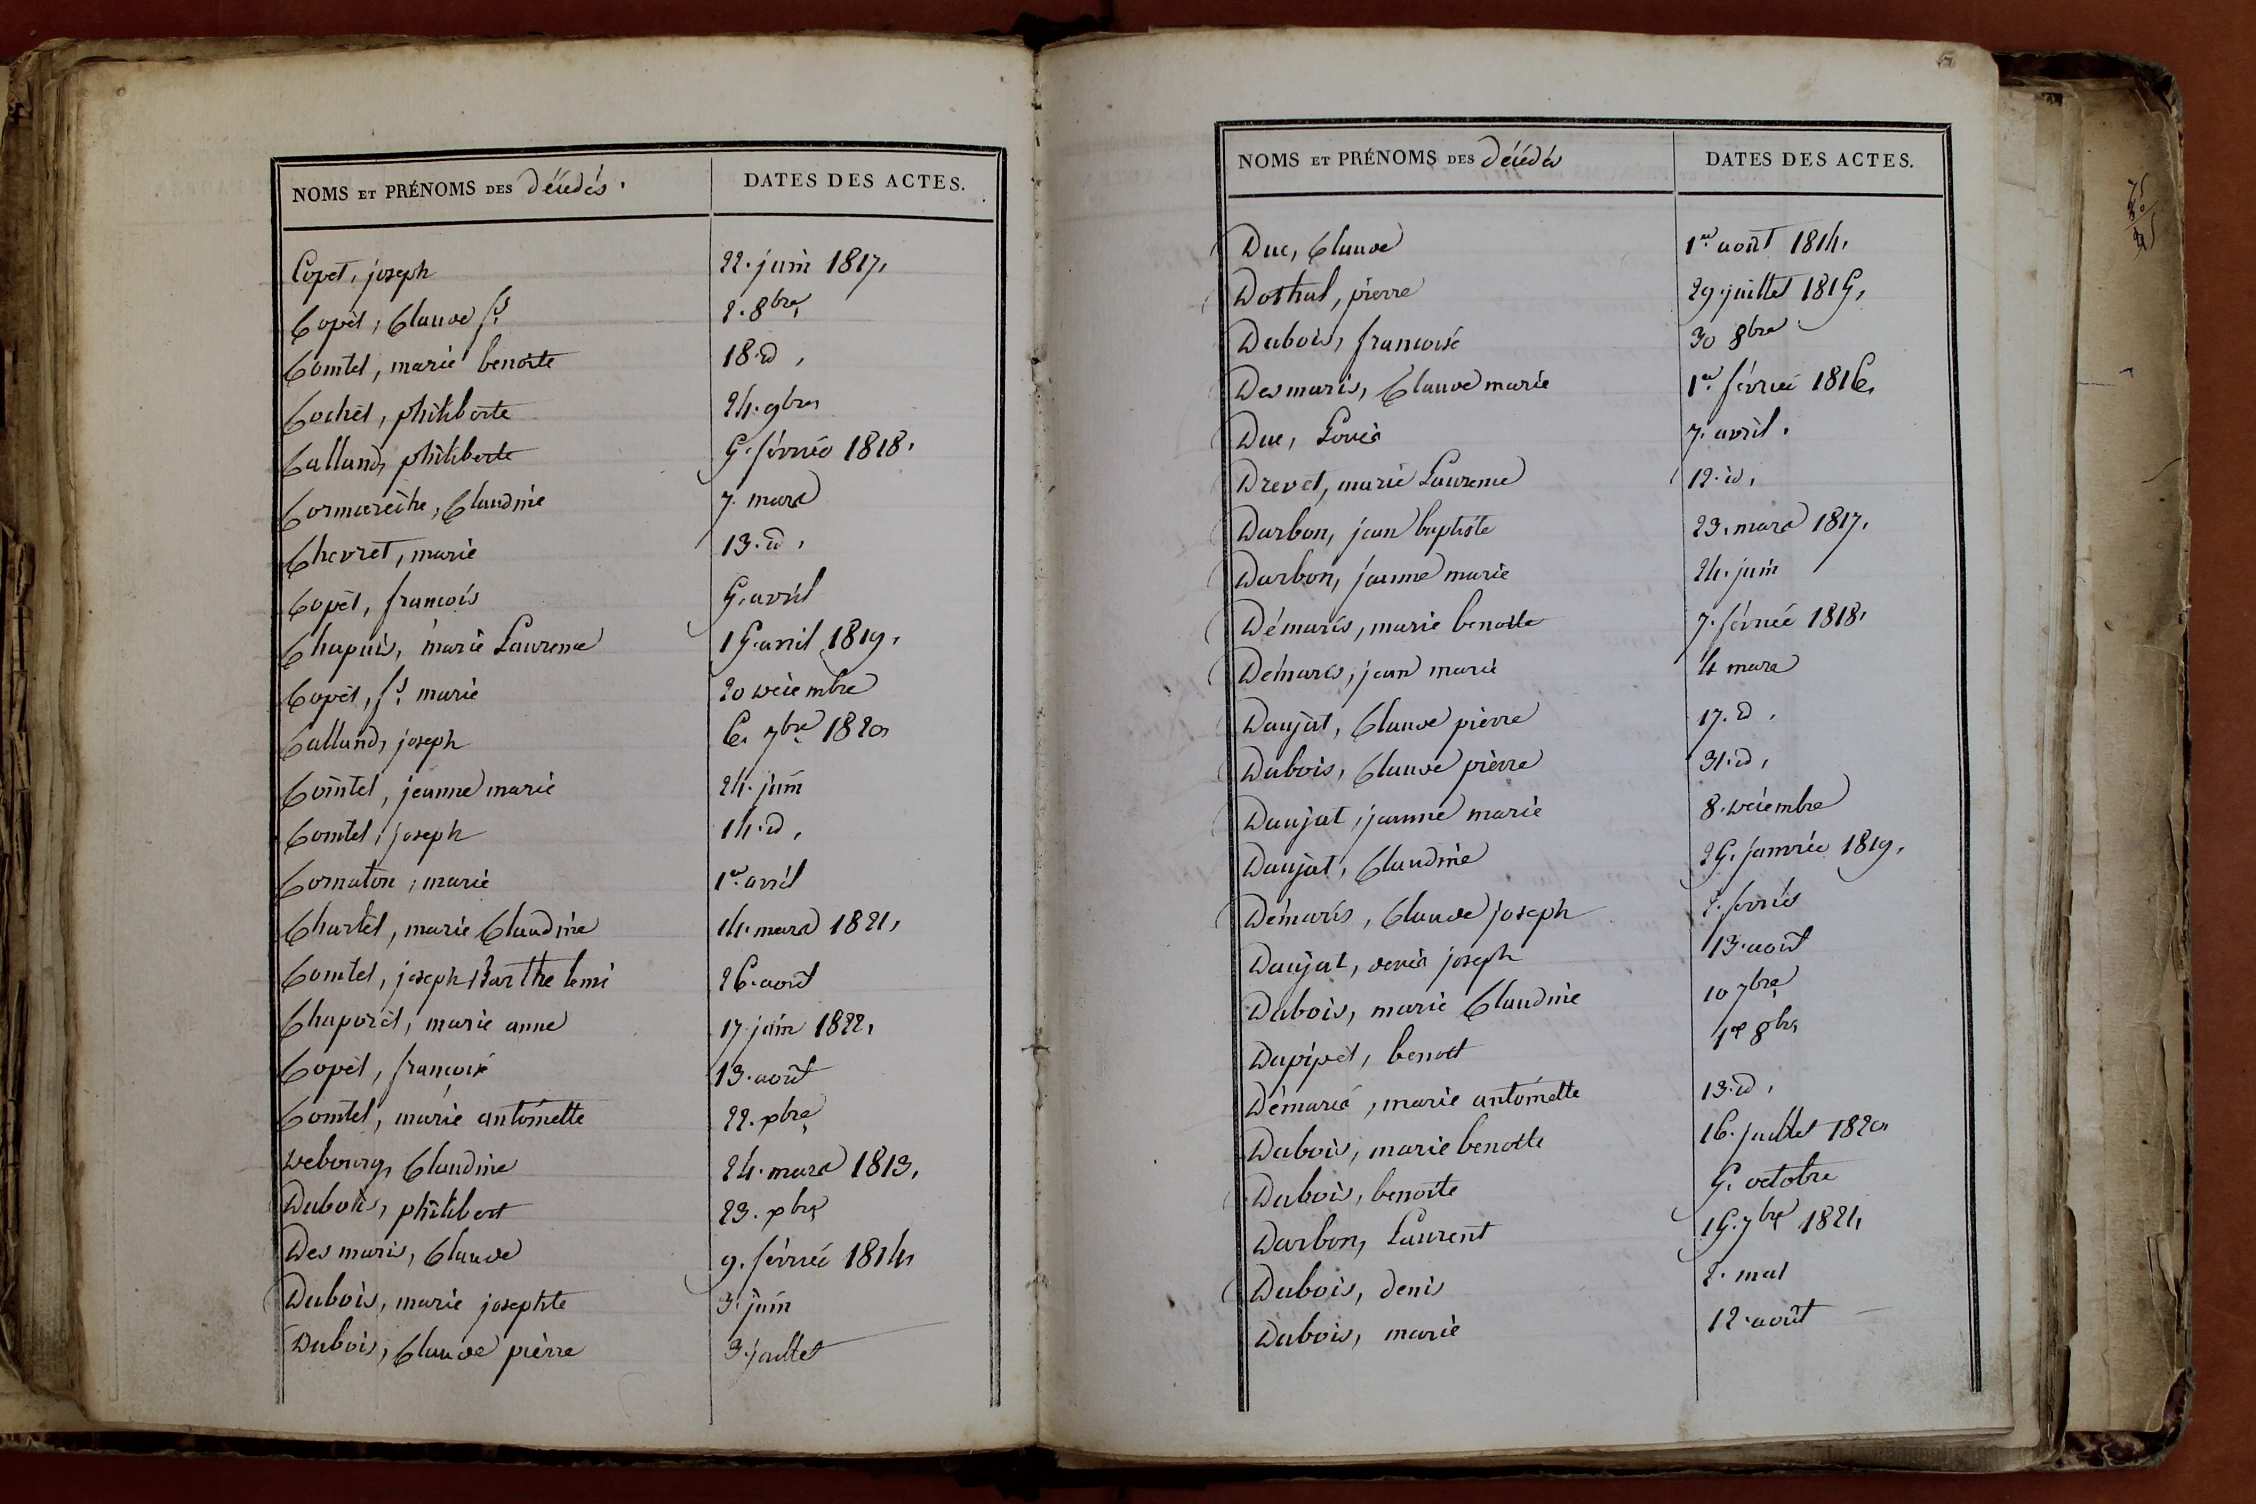 NOMS ET PRÉNOMS DES décédés. DATES DES ACTES.
Copet, joseph 22. juin 1817,
Copet, Claude fs. 2. 8bre,
Comtet, marie benoite 18. id,
Cochet, philiberte 24. 9bre,
Calland, philiberte 5. février 1818.
Cormareche, Claudine 7. mars
Chevret, marie 13. id,
Copet, francois 5. avril
Chapuis, marie Laurence 15. avril 1819,
Copet, fs. marie 20 décembre
Calland, joseph 6. 7bre 1820,
Comtet, jeanne marie 24. juin
Comtet, joseph 14. id,
Cornaton, marie 1er. avril
Chartet, marie Claudine 14. mars 1821,
Comtet, joseph Barthelemi 26. août
Chaporet, marie anne 17. juin 1822,
Copet, francoise 13. août
Comtet, marie antoinette 22. xbre,
Debourg, Claudine 24. mars 1813,
Dubois, philibert 23. xbre
Desmaris, Claude 9. février 1814,
Dubois, marie josephte 3. juin
Dubois, Claude pierre 3. juillet
NOMS ET PRÉNOMS DES décédés DATES DES ACTES.
Duc, Claude 1er. août 1814,
Dothal, pierre 29. juillet 1815,
Dubois, francoise 30 8bre
Desmaris, Claude marie 1er. février 1816,
Duc, Louis 7. avril.
Drevet, marie Laurence 12. id,
Darbon, jean baptiste 23. mars 1817,
Darbon, jeanne marie 24. juin
Démaris, marie benoite 7. février 1818,
Démaris, jean marie 4 mars
Daujat, Claude pierre 17. id,
Dubois, Claude pierre 31. id,
Daujat, jeanne marie 8. décembre
Daujat, Claudine 25. janvier 1819,
Démaris, Claude joseph 2. février
Daujat, denis joseph 13. août
Dubois, marie Claudine 10 7bre,
Dupipet, benoit 1er 8bre
Démaris, marie antoinette 13. id,
Dubois, marie benoite 16. juillet 1820,
Dubois, benoite 5. octobre
Darbon, Laurent 15. 7bre 1821,
Dubois, denis 2. mai
Dubois, marie 12. août